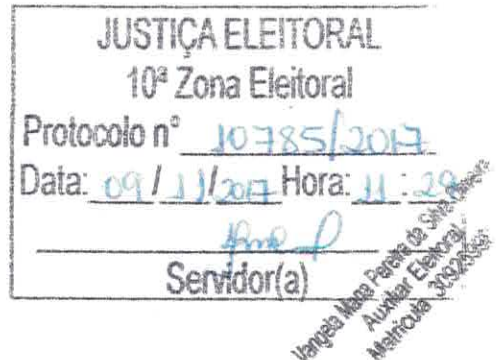 JUSTIÇA ELEITORAL
10ª Zona Eleitoral
Protocolo n° 10785/2017
Data: 09/11/2017 Hora: 11:29
Servidor(a)
Maria Pereira da Silva
Auxiliar Eleitoral
Matricula